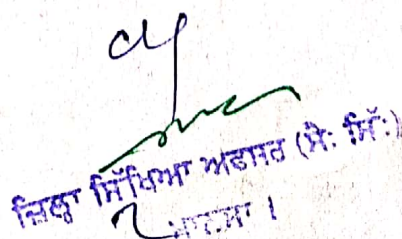 ਜ਼ਿਲ੍ਹਾ ਸਿੱਖਿਆ ਅਫਸਰ (ਸੈ: ਸਿੱ:)
ਮਾਨਸਾ ।